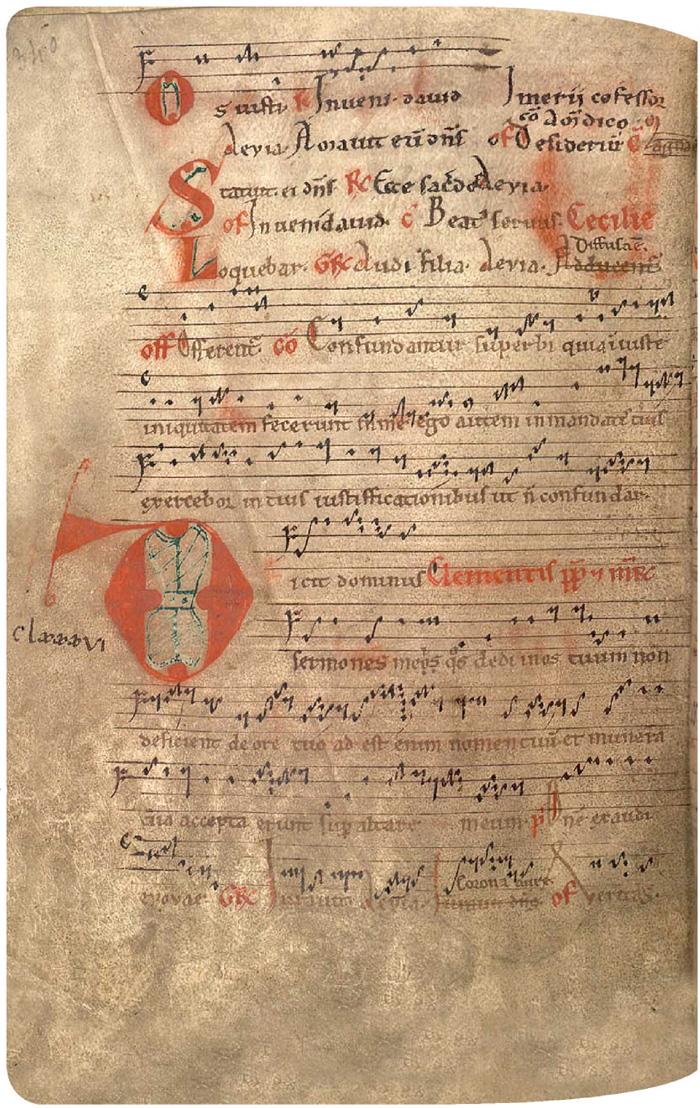 Os iusti. R Inveni david Imerii cofessor
cō Am̄ dico
Aevia Amavit eū dn̄s of Desideriū
Statuit ei dn̄s R Ecce sacdo Aevia
of Inveni david. c̄ Beat' servus. Cecilie
Diffusa ē.
Loquebar. GR Audi filia. Aevia. Adducent'
off Offerent' cō Confundantur superbi quia iniuste
iniquitatem fecerunt in me ego autem in mandat' tuis
exercebor in tuis iustifficationibus ut n̄ confundar.
Dicit dominus Clementis pp̄ &
clxxxvi
sermones meos q̄s dedi in os tuum non
deficient de ore tuo ad est enim nomen tuū et munera
tua accepta erunt sup altare meum p̄ Dn̄e exaudi
evovae GR Iuravit Aevia.
Corona aure
of Veritas.